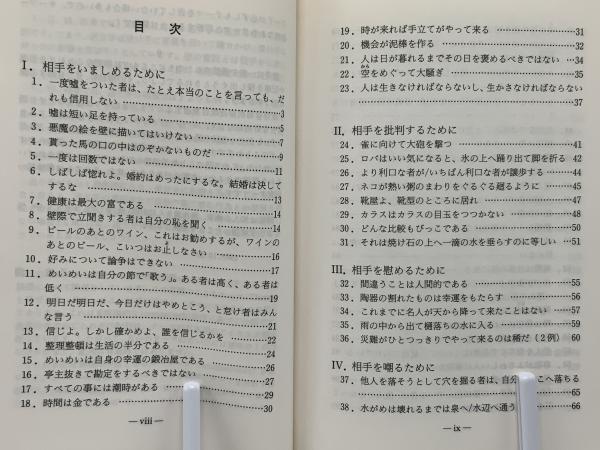 目次
I. 相手をいましめるために
1. 一度嘘をついた者は、たとえ本当のことを言っても、だ
れも信用しない……3
2. 嘘は短い足を持っている……5
3. 悪魔の絵を壁に描いてはいけない……7
4. 貰った馬の口の中はのぞかないものだ……9
5. 一度は回数ではない……11
6. しばしば惚れよ。婚約はめったにするな。結婚は決して
するな……13
7. 健康は最大の富である……14
8. 壁際で立聞きする者は自分の恥を聞く……14
9. ビールのあとのワイン、これはお勧めするが、ワインの
あとのビール、こいつはお止しなさい……16
10. 好みについて論争はできない……17
11. めいめいは自分の節で「歌う」。ある者は高く、ある者は
低く……19
12. 明日だ明日だ、今日だけはやめとこう、と怠け者はみん
な言う……21
13. 信じよ。しかし確かめよ、誰を信じるかを……22
14. 整理整頓は生活の半分である……24
15. めいめいは自身の幸運の鍛冶屋である……26
16. 亭主抜きで勘定をするべきではない……27
17. すべての事には潮時がある……29
18. 時間は金である……30
— viii —
19. 時が来れば手立てがやって来る……31
20. 機会が泥棒を作る……32
21. 人は日が暮れるまでその日を褒めるべきではない……34
22. 空をめぐって大騒ぎ……35
23. 人は生きなければならないし、生かさなければならない
……37
II. 相手を批判するために
24. 雀に向けて大砲を撃つ……41
25. ロバはいい気になると、氷の上へ踊り出て脚を折る 42
26. より利口な者が/いちばん利口な者が譲歩する……44
27. ネコが熱い粥のまわりをぐるぐる廻るように……45
28. 靴屋よ、靴型のところに居れ……47
29. カラスはカラスの目玉をつつかない……48
30. どんな比較もびっこである……50
31. それは焼け石の上へ一滴の水を垂らすのに等しい…51
III. 相手を慰めるために
32. 間違うことは人間的である……55
33. 陶器の割れたものは幸運をもたらす……56
34. これまでに名人が天から降って来たことはない……57
35. 雨の中から出て樋落ちの水に入る……59
36. 災難がひとつっきりでやって来るのは稀だ(2例) 60
IV. 相手を嘲るために
37. 他人を落そうとして穴を掘る者は、自分 こへ落ちる
……65
38. 水がめは壊れるまでは泉へ/水辺へ通う……66
— ix —